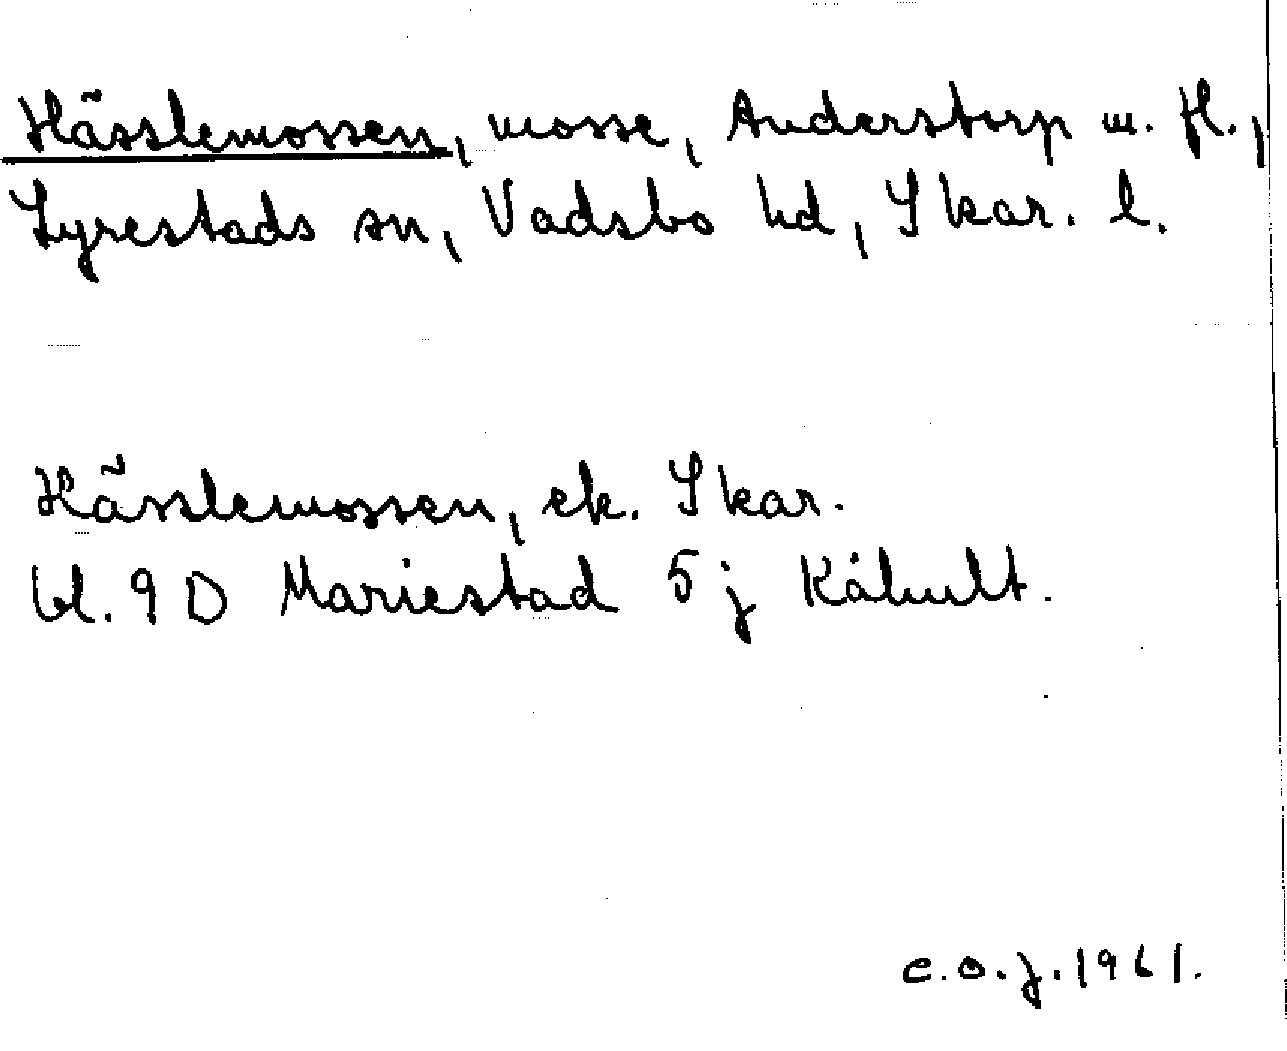 Hässlemossen, mosse, Anderstorp m. fl.,
Lyrestads sn, Vadsbo hd, Skar. l.
Hässlemossen, ek. Skar.
bl. 9 D Mariestad 5 j Kåhult.
C.O.J. 1961.